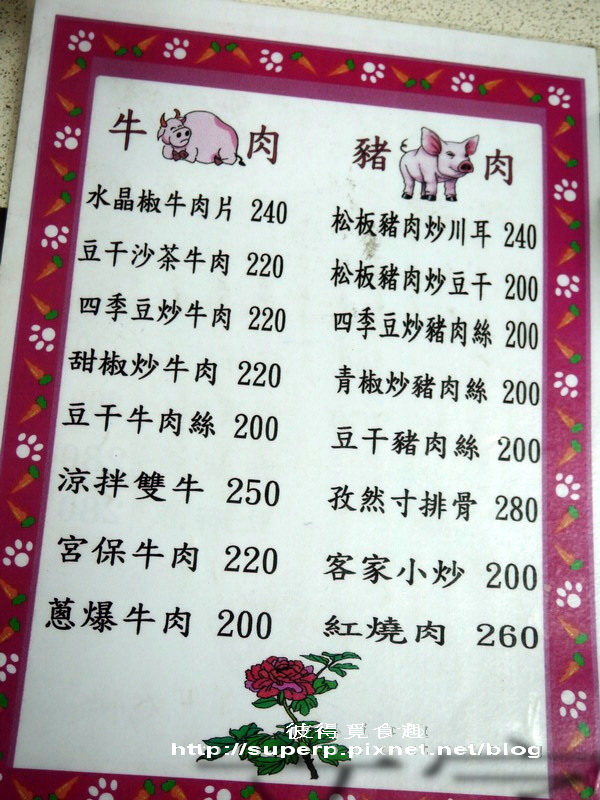 牛肉
水晶椒牛肉片 240
豆干沙茶牛肉 220
四季豆炒牛肉 220
甜椒炒牛肉 220
豆干牛肉絲 200
涼拌雙牛 250
宮保牛肉 220
蔥爆牛肉 200
豬肉
松板豬肉炒川耳 240
松板豬肉炒豆干 200
四季豆炒豬肉絲 200
青椒炒豬肉絲 200
豆干豬肉絲 200
孜然寸排骨 280
客家小炒 200
紅燒肉 260
彼得覓食趣
http://superp.pixnet.net/blog